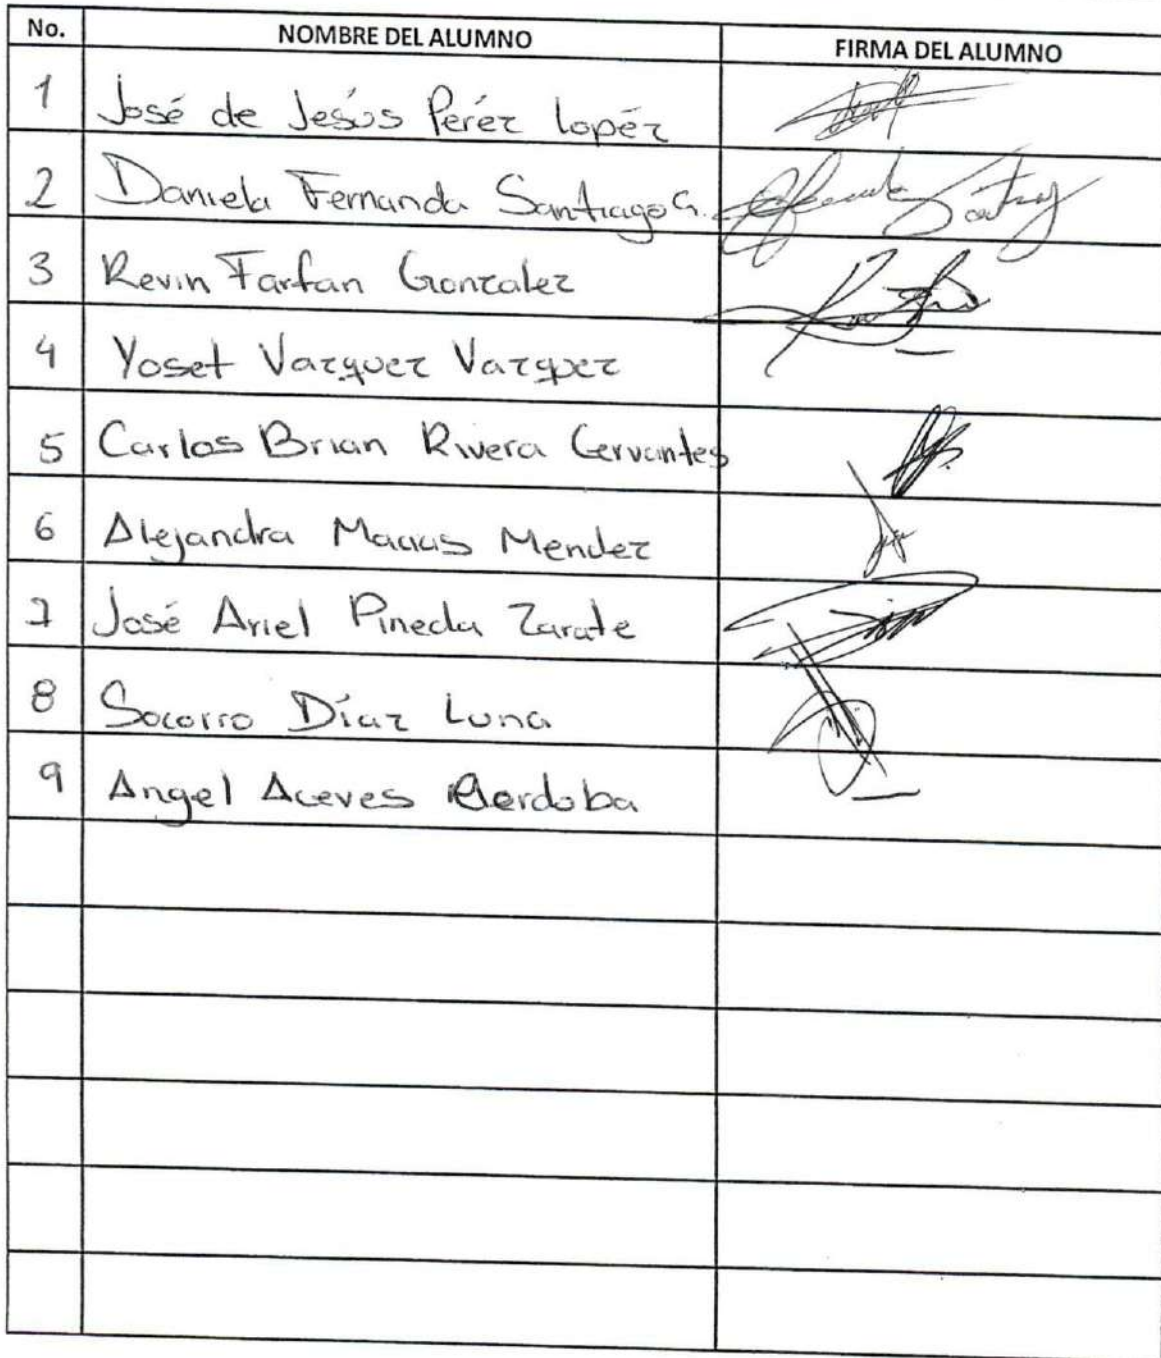 No. NOMBRE DEL ALUMNO FIRMA DEL ALUMNO
1 José de Jesús Peréz lopéz
2 Daniela Fernanda Santiago G.
3 Kevin Farfan Gonzalez
4 Yoset Vazquez Vazquez —
5 Carlos Brian Rivera Cervantes
6 Alejandra Macias Mendez
7 José Ariel Pineda Zarate
8 Socorro Díaz Luna
9 Angel Aceves Cordoba —